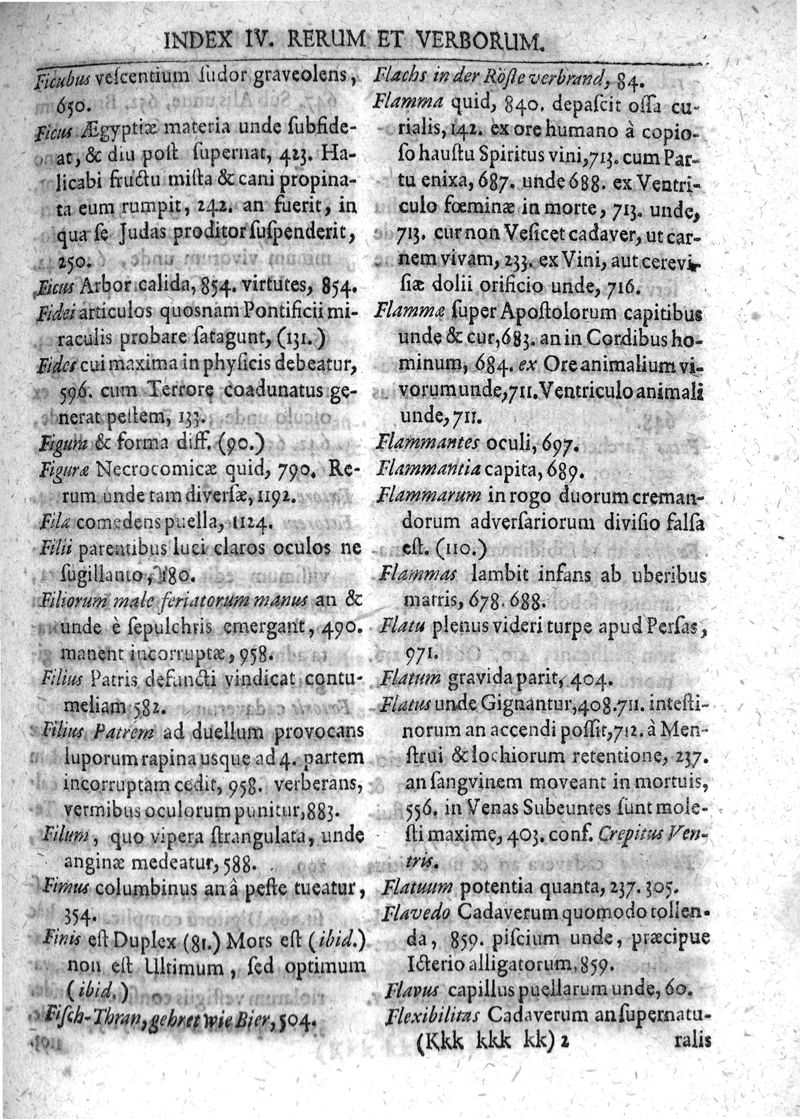 INDEX IV. RERUM ET VERBORUM.
Ficubus veſcentium ſudor graveolens,
650.
Ficus Ægyptiæ materia unde ſubſide-
at, & diu poſt ſupernat, 423. Ha-
licabi fructu miſta & cani propina-
ta eum rumpit, 242. an fuerit, in
qua ſe Judas proditor ſuſpenderit,
250.
Ficus Arbor calida, 854. virtutes, 854.
Fidei articulos quosnam Pontificii mi-
raculis probare ſatagunt, (131.)
Fides cui maxima in phyſicis debeatur,
596. cum Terrore coadunatus ge-
nerat peſtem, 133.
Figura & forma diff. (90.)
Figuræ Necrocomicæ quid, 790. Re-
rum unde tam diverſæ, 1192.
Fila comedens puella, 1124.
Filii parentibus luci claros oculos ne
ſugillanto, 180.
Filiorum male feriatorum manus an &
unde è ſepulchris emergant, 490.
manent incorruptæ, 958.
Filius Patris defuncti vindicat contu-
meliam 582.
Filius Patrem ad duellum provocans
luporum rapina usque ad 4. partem
incorruptam cedit, 958. verberans,
vermibus oculorum punitur, 883.
Filum, quo vipera ſtrangulata, unde
anginæ medeatur, 588.
Fimus columbinus an à peſte tueatur,
354.
Finis eſt Duplex (81.) Mors eſt (ibid.)
non eſt Ultimum, ſed optimum
(ibid.)
Fiſch-Thran, gehret wie Bier, 504.
Flachs in der Röſte verbrand, 84.
Flamma quid, 840. depaſcit oſſa cu-
rialis, 142. ex ore humano à copio-
ſo hauſtu Spiritus vini, 713. cum Par-
tu enixa, 687. unde 688. ex Ventri-
culo fœminæ in morte, 713. unde,
713. cur non Veſicet cadaver, ut car-
nem vivam, 233. ex Vini, aut cerevi-
ſiæ dolii orificio unde, 716.
Flammæ ſuper Apoſtolorum capitibus
unde & cur, 683. an in Cordibus ho-
minum, 684. ex Ore animalium vi-
vorum unde, 711. Ventriculo animali
unde, 711.
Flammantes oculi, 697.
Flammantia capita, 689.
Flammarum in rogo duorum creman-
dorum adverſariorum diviſio falſa
eſt. (110.)
Flammas lambit infans ab uberibus
matris, 678. 688.
Flatu plenus videri turpe apud Perſas,
971.
Flatum gravida parit, 404.
Flatus unde Gignantur, 408. 711. inteſti-
norum an accendi poſſit, 712. à Men-
ſtrui & lochiorum retentione, 237.
an ſangvinem moveant in mortuis,
556. in Venas Subeuntes ſunt mole-
ſti maxime, 403. conf. Crepitus Ven-
tris.
Flatuum potentia quanta, 237. 305.
Flavedo Cadaverum quomodo tollen-
da, 859. piſcium unde, præcipue
Icterio alligatorum, 859.
Flavus capillus puellarum unde, 60.
Flexibilitas Cadaverum an ſupernatu-
(Kkk kkk kk) 2 ralis